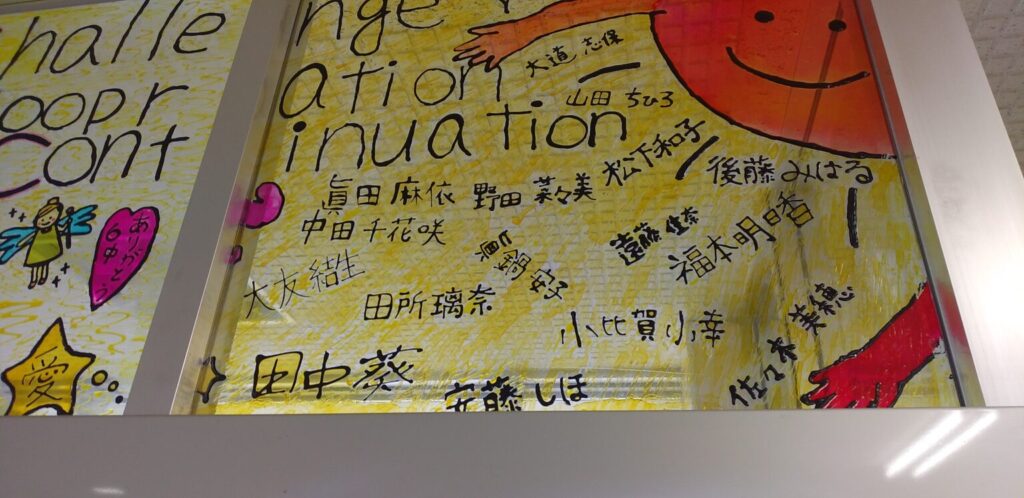 halle
nge
oopr
ation
Cont
inuation
大道 志保
山田 ちひろ
松下和子
後藤 みはる
眞田 麻依
野田 菜々美
中田 千花咲
遠藤 佳奈
福本明日香
大友 結生
田所 璃奈
小比賀 小幸
佐々木 美穂
田中 葵
安藤 しほ
ありがとう
愛